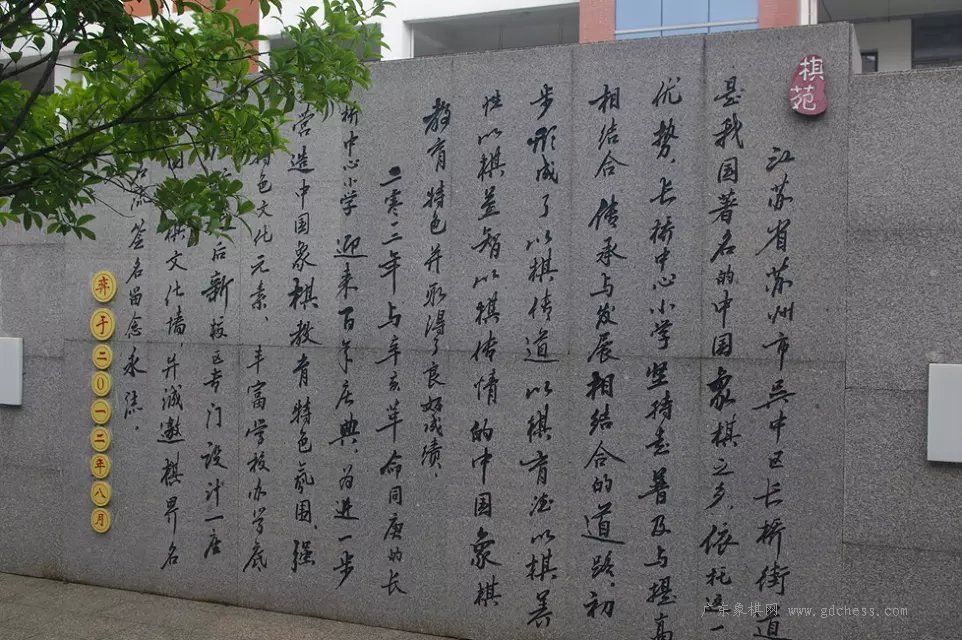 棋苑
江苏省苏州市吴中区长桥街道
是我国著名的中国象棋之乡,依托这一
优势,长桥中心小学坚持走普及与提高
相结合 传承与发展相结合的道路,初
步形成了以棋传道 以棋育德 以棋养
性 以棋益智 以棋传情的中国象棋
教育特色 并取得了良好成绩.
二零一二年与辛亥革命同庚的长
桥中心小学 迎来百年庆典,为进一步
营造中国象棋教育特色氛围,强
特色文化元素,丰富学校办学底
后新校区专门设计一座
国棋文化墙,并诚邀棋界名
流签名留念永
弈于二0一二年八月
广东象棋网 www.gdchess.com